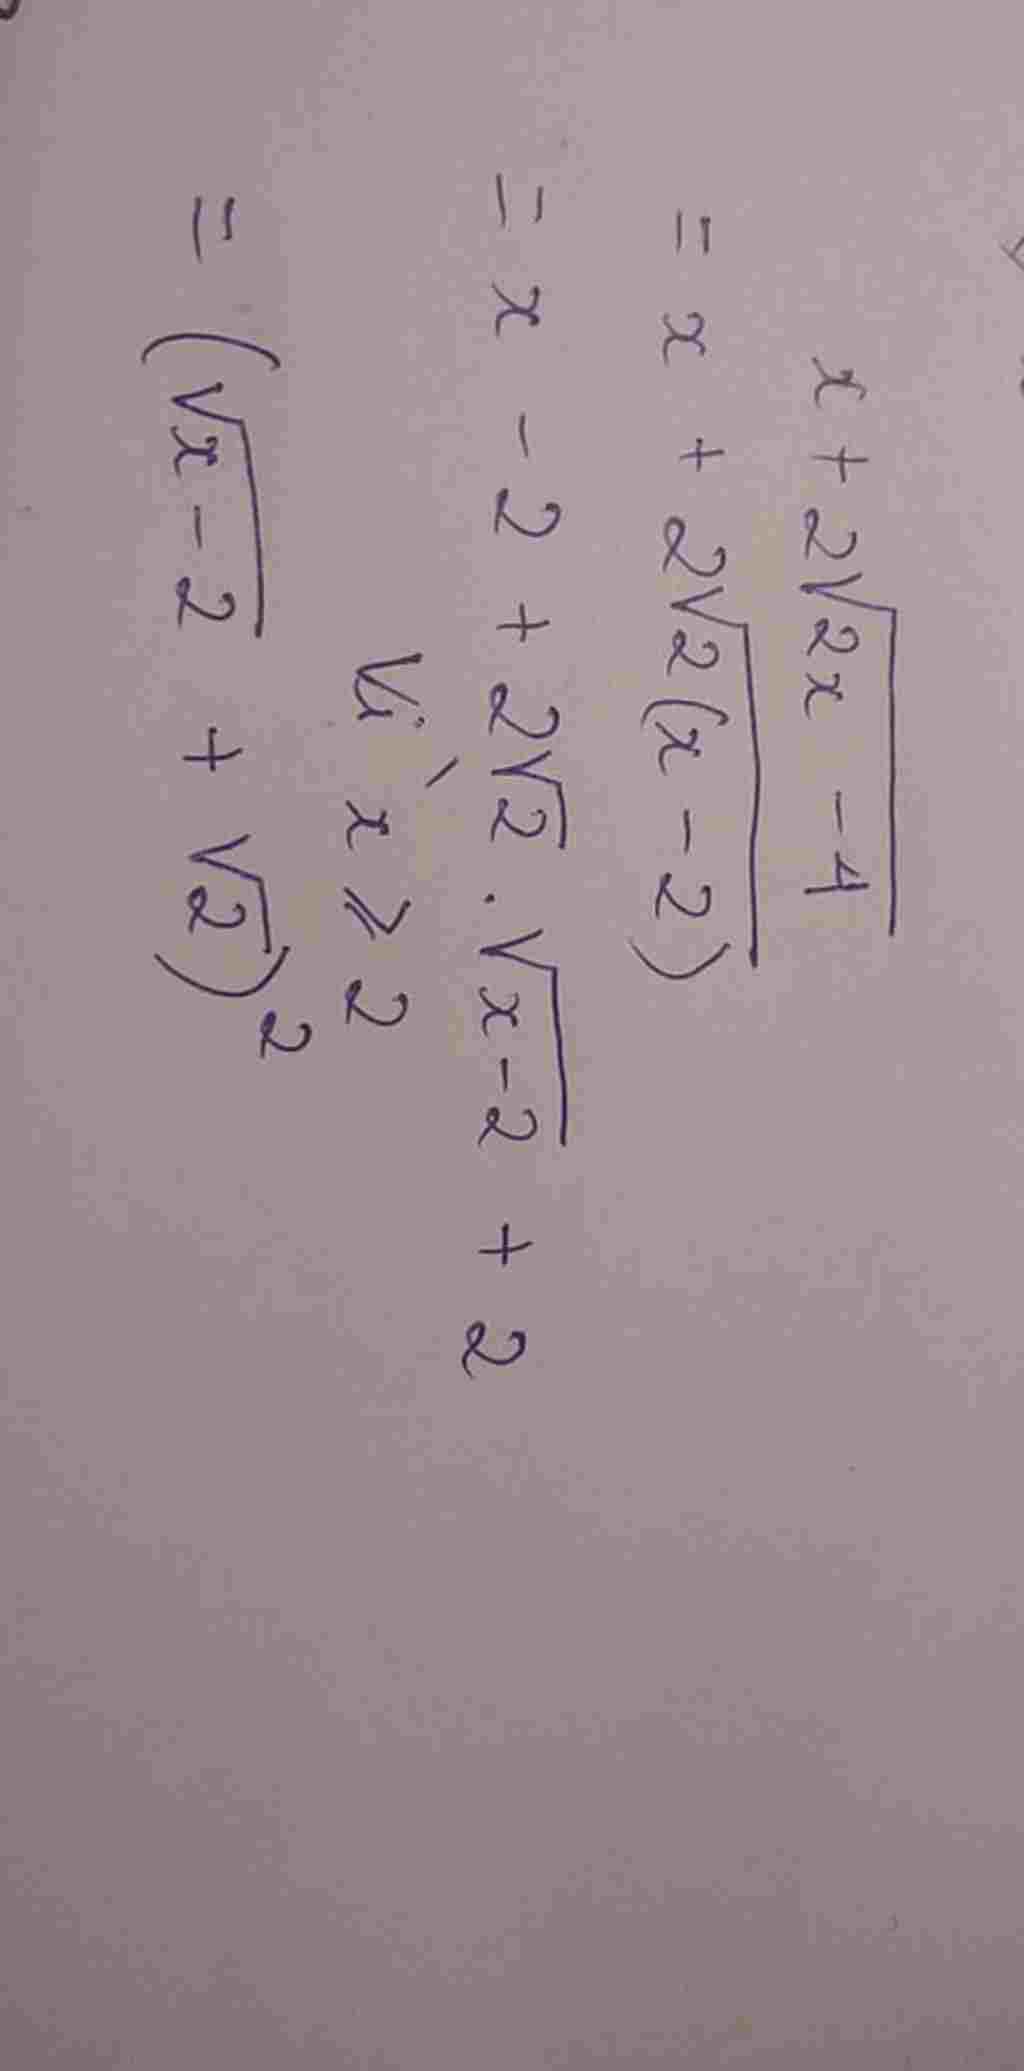 x + 2√(2x - 4)
= x + 2√(2(x - 2))
= x - 2 + 2√2 . √(x - 2) + 2
Vì x ⩾ 2
= (√(x - 2) + √2)²